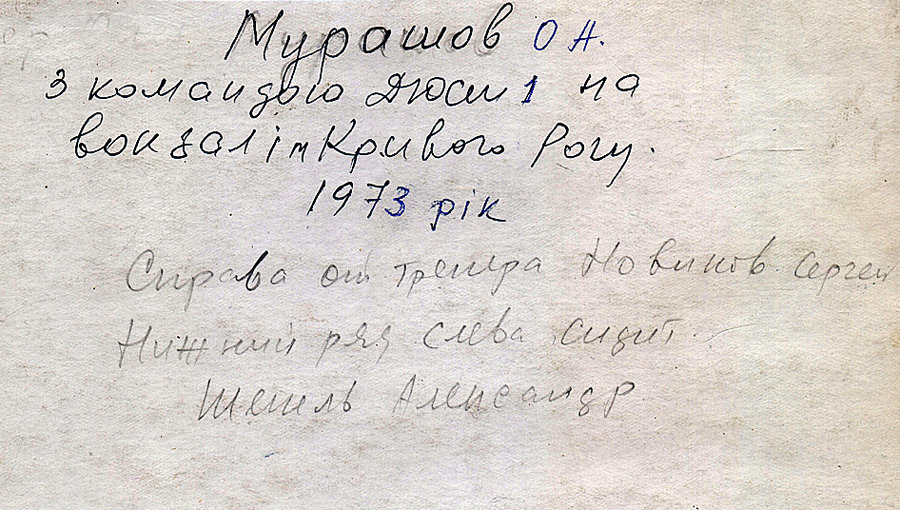 Мурашов О А.
з командою Дюсш 1 на
вокзалі м Кривого Рогу.
1973 рік
Справа от тренера Новиков Сергей
Нижний ряд слева сидит
Александр